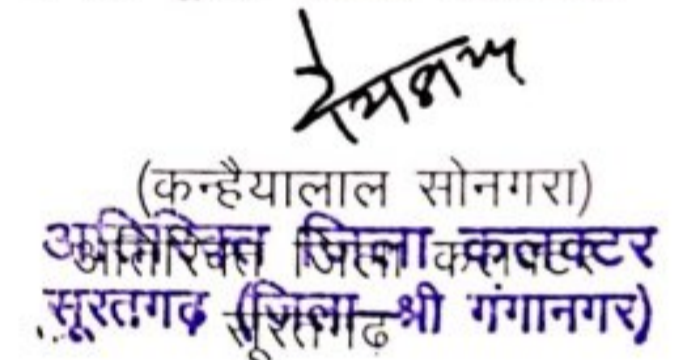 (कन्हैयालाल सोनगरा)
अतिरिक्त जिला कलक्टर
अतिरिक्त जिला कलक्टर
सूरतगढ (जिला श्री गंगानगर)
सूरतगढ